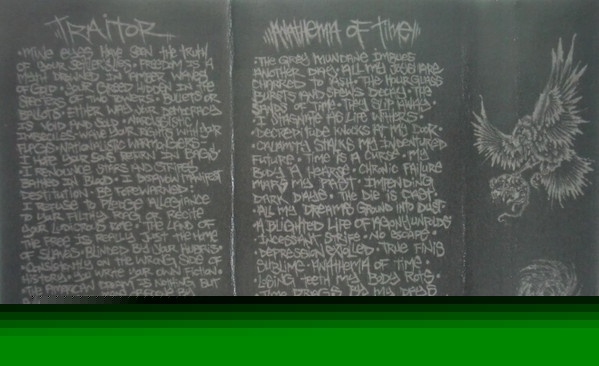 TRAITOR
• MINE EYES HAVE SEEN THE TRUTH
OF YOUR FREEDOM IS A
MYTH DROWNED IN AMBER WAVES
OF GOLD • YOUR GREED HIDDEN IN THE
OF TWO • BULLETS OR
BALLOTS • EITHER WAY YOUR DEMOCRACY
IS YOURS AND
• WAVE YOUR RIGHTS WITH YOUR
FLAGS • NATIONALISTIC WARMONGERS •
I HOPE YOUR SONS RETURN IN BAGS •
I RENOUNCE STARS AND STRIPES
BATHED IN BLOOD • I DEMAND MANIFEST
DESTITUTION • BE FOREWARNED:
I REFUSE TO PLEDGE ALLEGIANCE
TO YOUR FILTHY RAG OR RECITE
YOUR LUDICROUS • THE LAND OF
THE FREE IS REALLY JUST THE HOME
OF SLAVES • BLINDED BY YOUR HUBRIS •
• CONSISTENTLY ON THE WRONG SIDE OF
HISTORY • YOU WRITE YOUR OWN FICTION •
THE AMERICAN DREAM IS NOTHING BUT
ANATHEMA OF TIME
• THE GREY MUNDANE IMBUES
ANOTHER DAY • ALL MY JOYS ARE
CHARRED TO ASH • THE HOURGLASS
BURSTS AND SPEWS DECAY • THE
SANDS OF TIME • THEY SLIP AWAY •
I STAGNATE AS LIFE WITHERS •
• DECREPITUDE KNOCKS AT MY DOOR •
• CALAMITY STALKS MY INDENTURED
FUTURE • TIME IS A CURSE • MY
BODY A HEARSE • CHRONIC FAILURE
MARS MY PAST • IMPENDING
DARK DAYS • THE DIE IS CAST
• ALL MY DREAMS GROUND INTO DUST •
A BLIGHTED LIFE OF AGONY UNFOLDS •
• INCESSANT STRIFE • NO ESCAPE •
• DEPRESSION EXTOLLED • TRUE FINIS
SUBLIME • ANATHEMA OF TIME •
• LOSING TEETH MY BODY ROTS •
• TIME DRAGS BY MY DAYS